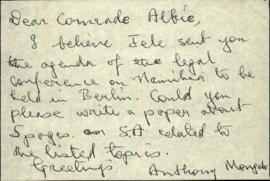 Dear Comrade Albie,
I believe Fele sent you
the agenda of the legal
conference on Namibia to be
held in Berlin. Could you
please write a paper about
5 pages on SA related to
the listed topics.
Greetings
Anthony